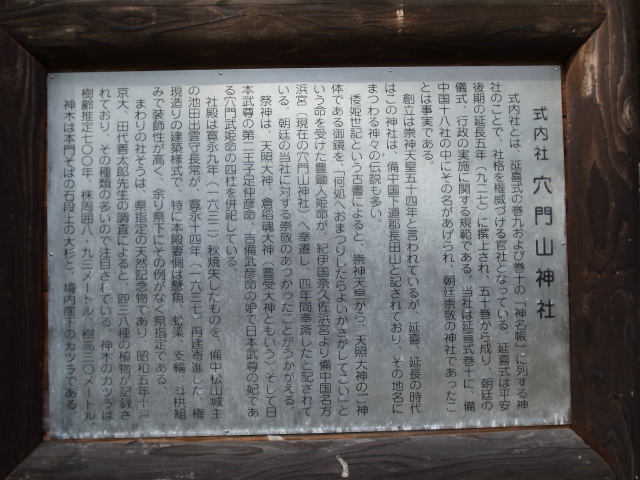 式内社 穴門山神社
式内社とは、延喜式の巻九および巻十の「神名帳」に列する神
社のことで、社格を権威づける官社となっている。延喜式は平安
後期の延長五年（九二七）に撰上され、五十巻から成り、朝廷の
儀式、行政の実施に関する規範である。当社は延喜式巻十に、備
中国十八社の中にその名があげられ、朝廷崇敬の神社であったこ
とは事実である。
創立は崇神天皇五十四年と言われているが、延喜、延長の時代
はこの神社は、備中国下道郡長田山と記されており、その地名に
まつわる神々の伝説も多い。
倭姫世記という古書によると、崇神天皇から、天照大神の二神
体である御鏡を、「何処へおまつりしたらよいかさがしてこい」と
いう命を受けた豊鋤入姫命が、紀伊国奈久佐浜宮より備中国名方
浜宮（現在の穴門山神社）へ奉遷し、四年間奉斎したと記されて
いる。朝廷の当社に対する崇敬のあつかったことがうかがえる。
祭神は、天照大神、倉稻魂大神（豊受大神ともいう）そして日
本武尊の第二王子足仲彦命、吉備武彦命の娘で日本武尊の妃であ
る穴門武姫命の四柱を併祀している。
社殿は寛永九年（一六三二）秋焼失したものを、備中松山城主
の池田出雲守長常が、寛永十四年（一六三七）再建寄進した。権
現造りの建築様式で、特に本殿妻側は懸魚、虹梁、支輪、斗栱組
みで装飾性が高く、余り県下にその例がなく県指定である。
まわりの社そうは、県指定の天然記念物であり、昭和五年十月
京大、田代善太郎先生の調査によると、四三八種の植物が記録さ
れており、その種類の多いので注目されている。神木のカツラは
樹齢推定七〇〇年、株周囲八・九三メートル、樹高三〇メートル
神木は本門そばの石段上の大杉と、境内崖下のカツラである。